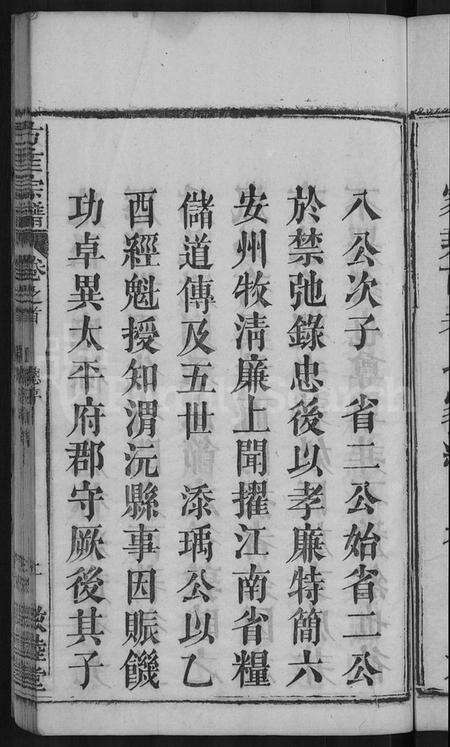 八公次子　省二公始省二公
於禁弛錄忠後以孝廉特簡六
安州牧清廉上聞擢江南省糧
儲道傳及五世　添瑀公以乙
酉經魁授知渭沅縣事因賑饑
功卓異太平府郡守厥後其子
宗譜
卷之首